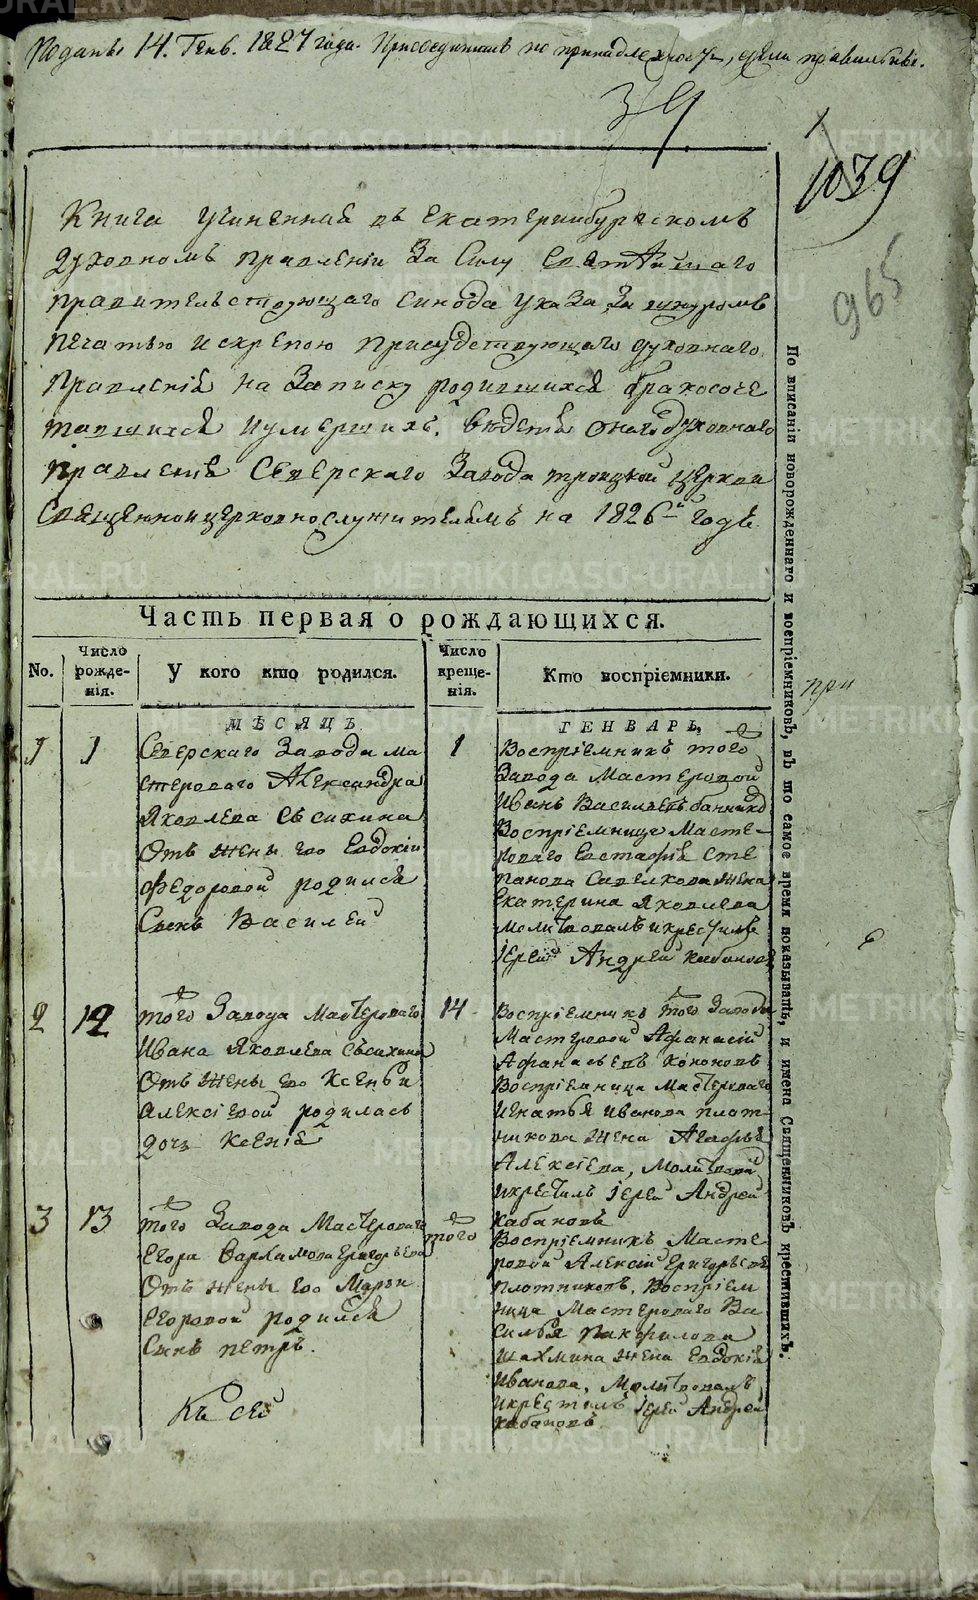 Поданъ 14. Генв. 1827 года. Присоединить по принадлежности,
39
1039
965
Книга учиненная въ Екатеринбургскомъ
духовномъ правленіи За силу Святѣйшаго
правительствующаго Синода указа За шнуромъ
печатью искрепою присудствующаго духовнаго
правленія на Записку родившихся бракосоче
тавшихся иумершихъ, вѣденія онаго духовнаго
правленія Сѣверскаго Завода троицкой церкви
Священноицерковнослужителямъ на 1826й годъ
Часть первая о рождающихся.
No.
Число рожде- нія.
У кого кто родился.
Число креще- нія.
Кто воспріемники.
МѢСЯЦЪ
ГЕНВАРЬ,
1
1
Сѣверскаго Завода ма
стероваго Александра
Яковлева Сысихина
Отъ жены его Евдокіи
Федоровой родился
Сынъ Василей
1
Воспріемникъ того
Завода Мастеровой
Иванъ Васильевъ банников
Воспріемница Масте-
роваго Евстафія Сте
панова Савелкова жена
Екатерина Яковлева
молитвовалъ икрестилъ
Іерей Андрей Кабановъ
2
12
того Завода Мастероваго
Ивана Яковлева Сысихина
Отъ жены его Ксеньи
Алексіевой родилась
дочь Ксенія
14
Воспріемникъ того Завода
Мастеровой Афанасій
Афанасьевъ Кононовъ
Воспріемница Мастероваго
Игнатья Иванова плот-
никова жена Агафья
Алексіева, Молитвовалъ
икрестилъ Іерей Андрей
Кабановъ
3
13
того Завода Мастероваго
Егора Варламова Григорьева
Отъ жены его Марьи
Егоровой родился
Сынъ петръ.
того
Воспріемникъ Масте-
ровой Алексій Григорьевъ
Плотниковъ, Воспріем
ница Мастероваго Ва
силья Панфилова
Шахмина жена Евдокія
Иванова, Молитвовалъ
икрестилъ Іерей Андрей
Кабановъ
Къ сей
при
По вписаніи новорожденнаго и воспріемниковъ, въ то самое время показывать, и имена Священниковъ крестившихъ.